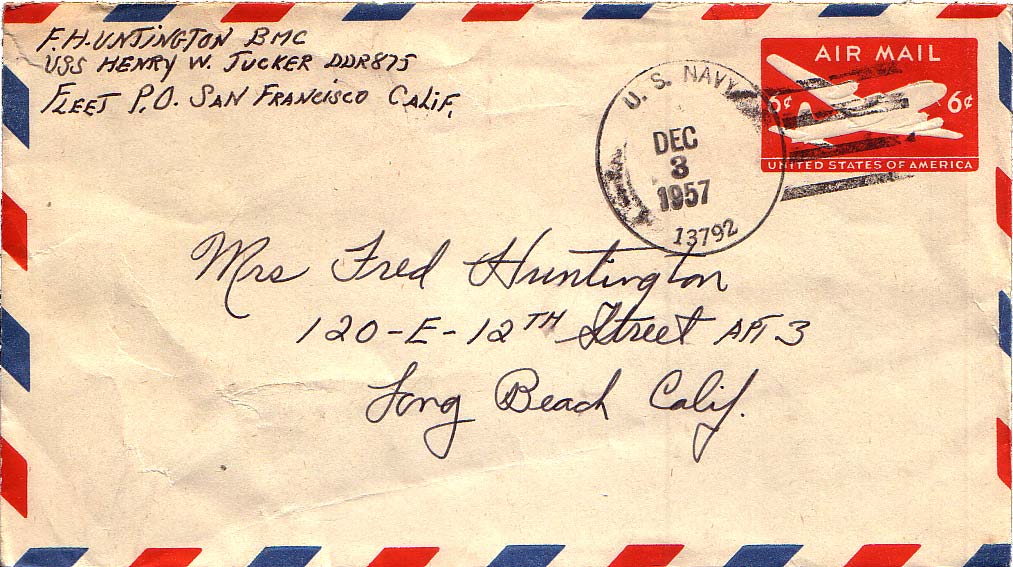 F. HUNTINGTON BMC
USS HENRY W. TUCKER DDR875
FLEET P.O. SAN FRANCISCO CALIF.
U. S. NAVY
DEC
3
1957
13792
AIR MAIL
6¢ 6¢
UNITED STATES OF AMERICA
Mrs Fred Huntington
120-E-12TH Street APT 3
Long Beach Calif.